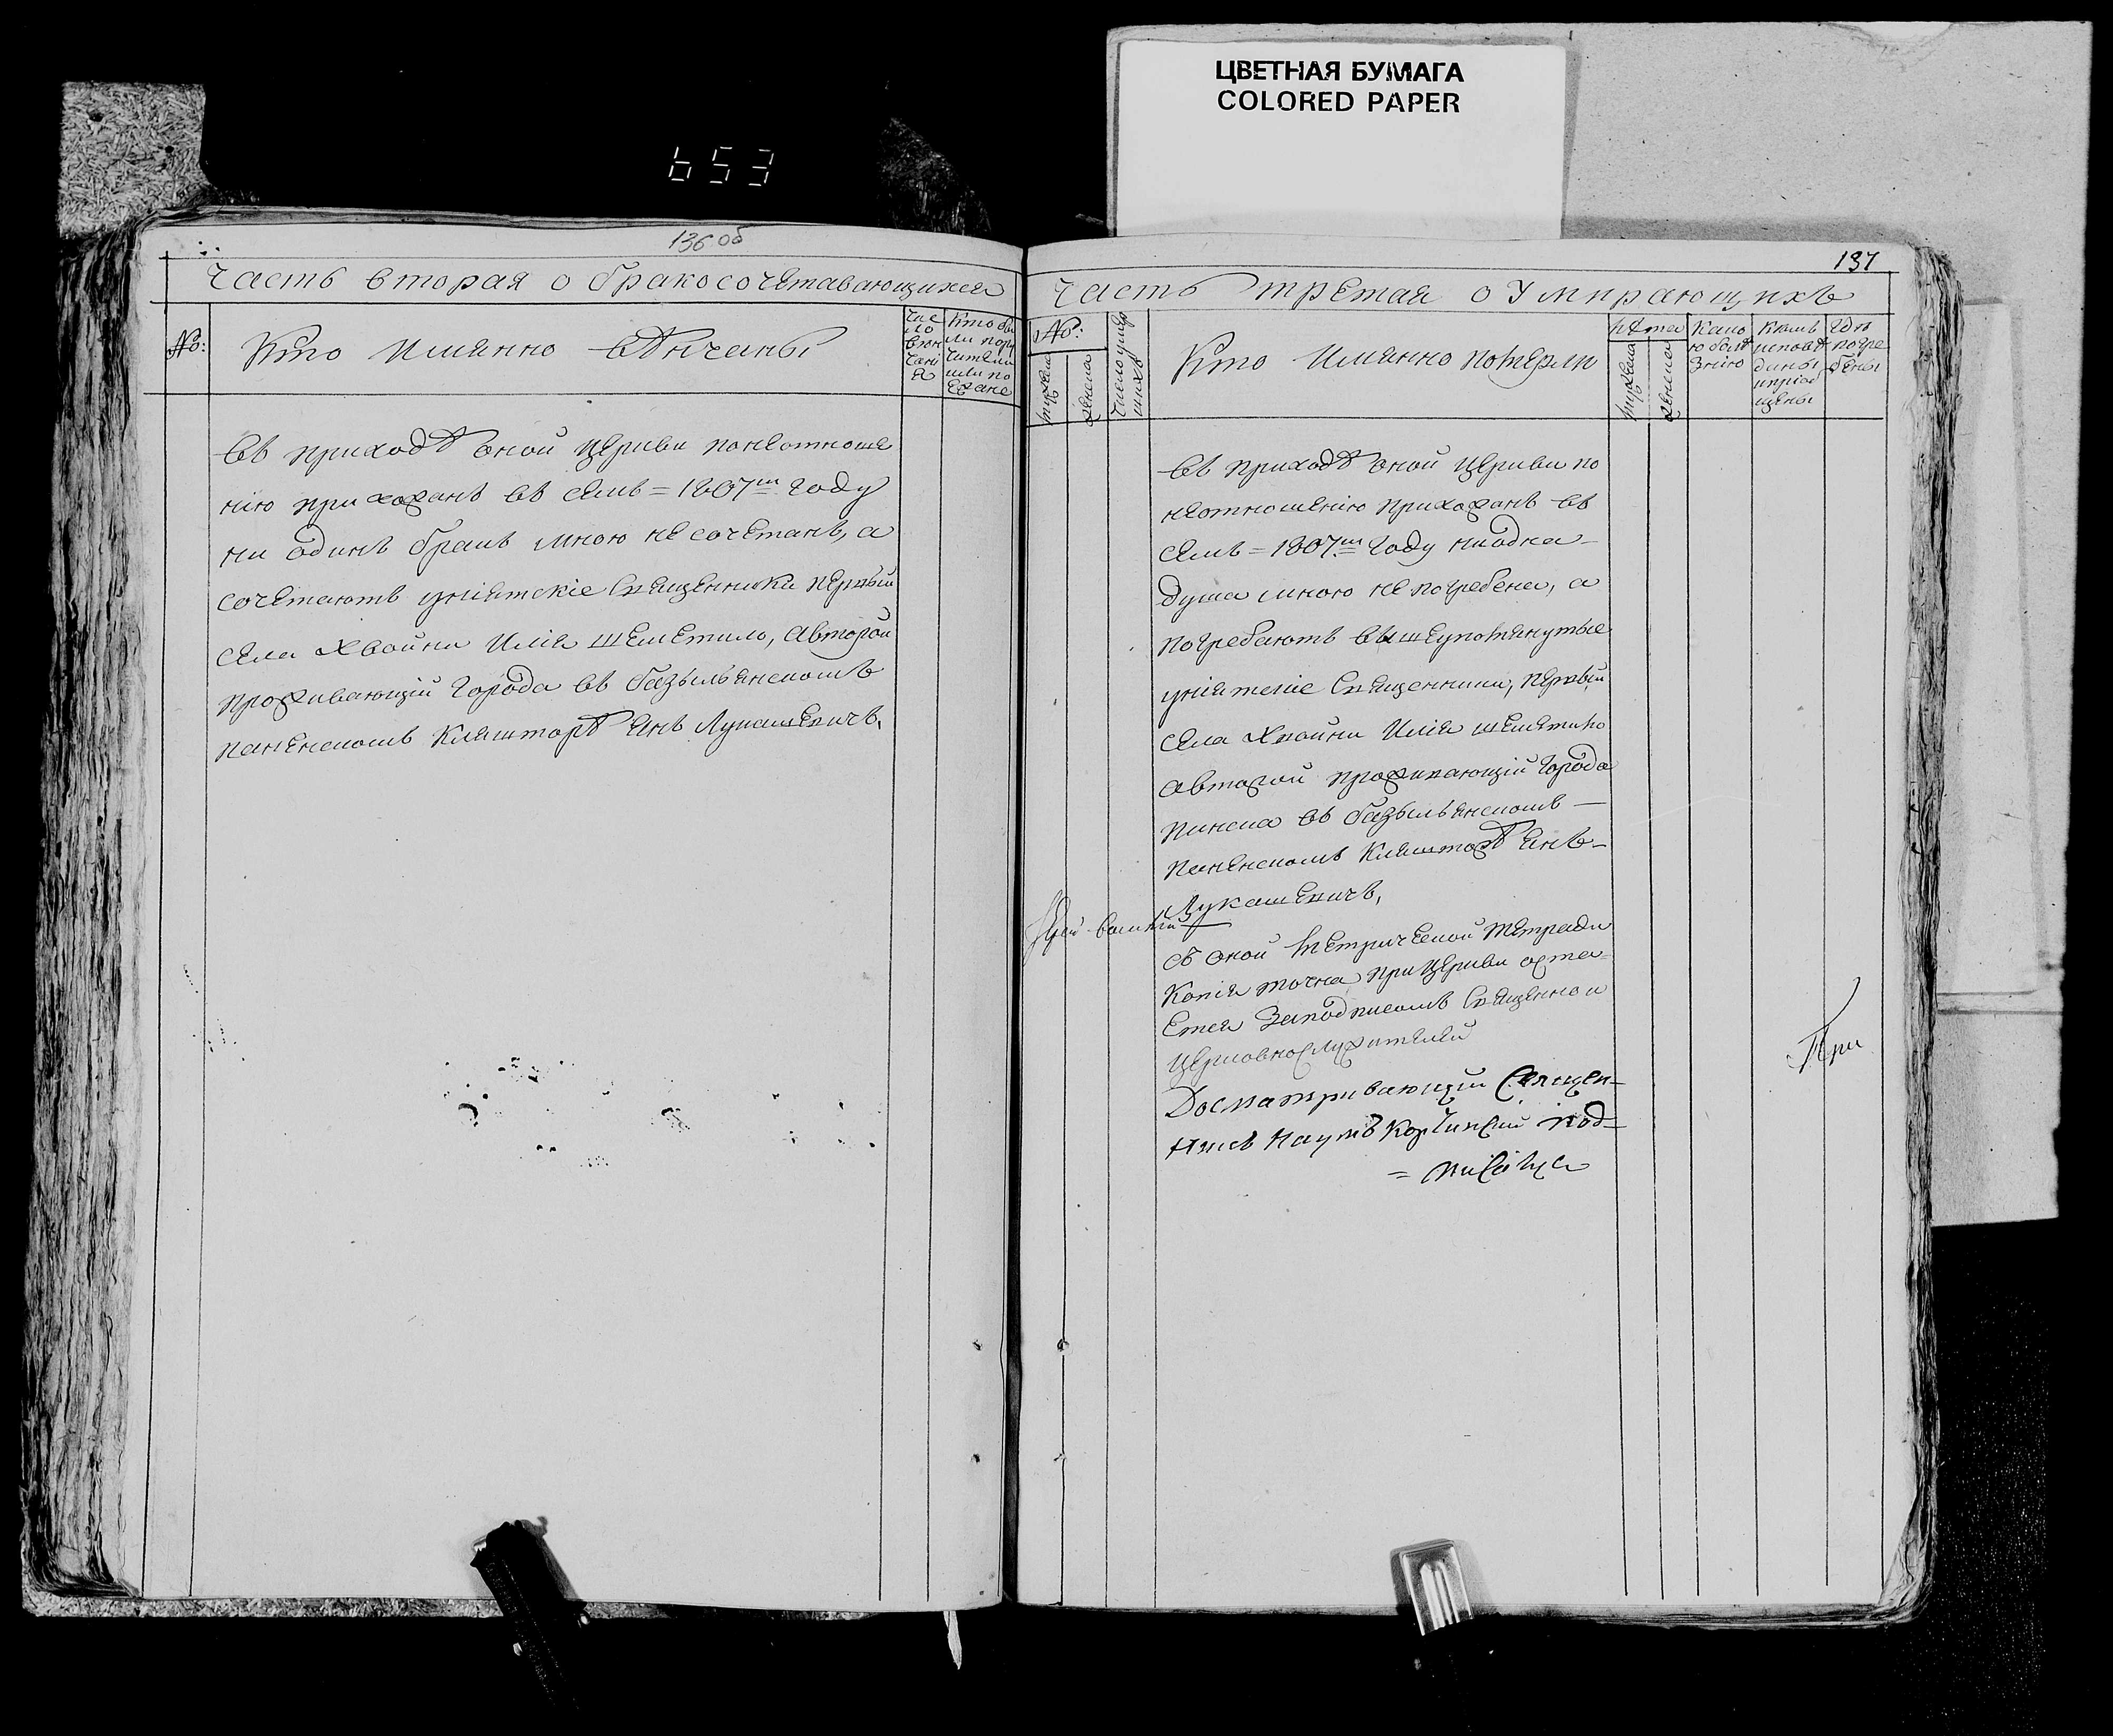 ЦВЕТНАЯ БУМАГА
COLORED PAPER
653
136 об
Часть вторая о бракосочетавающихся
№:
Кто имянно вѣнчаны
Чис
ло
вѣн
чані
я
Кто бы
ли пору
чители
или по
езжане
въ приходѣ оной церкви понеотноше
нію прихожанъ въ семъ = 1807м году
ни одинъ бракъ мною не сочетанъ, а
сочетаютъ уніятскіе священники первый
села Хвойни Илія Шеметило, авторой
проживающій города въ базыльянскомъ
паненскомъ кляшторѣ Янъ Лукашевичъ,
137
Часть третая о умирающихъ
№:
мужеска
женска
Число умер
шихъ
Кто имянно померли
лѣта
мужеска
женска
Како
ю болѣ
знію
Кѣмъ
исповѣ
даны
и пріоб
щены
Гдѣ
погре
бены
въ приходѣ оной церкви по
неотношенію прихожанъ въ
семъ = 1807м году ниодна
душа мною не погребена, а
погребаютъ вышеупомянутые
уніятскіе священники, первый
села Хвойни Илія Шеметило
авторой проживающій города
Пинска въ базыльянскомъ
паненскомъ кляшторѣ Янъ
Лукашевичъ,
съ оной метрической тетради
копія точна при церкви оста
ется заподписомъ священно и
церковнослужителей
Досматривающій Священ-
никъ Наумъ Корчинский под-
= писался
При